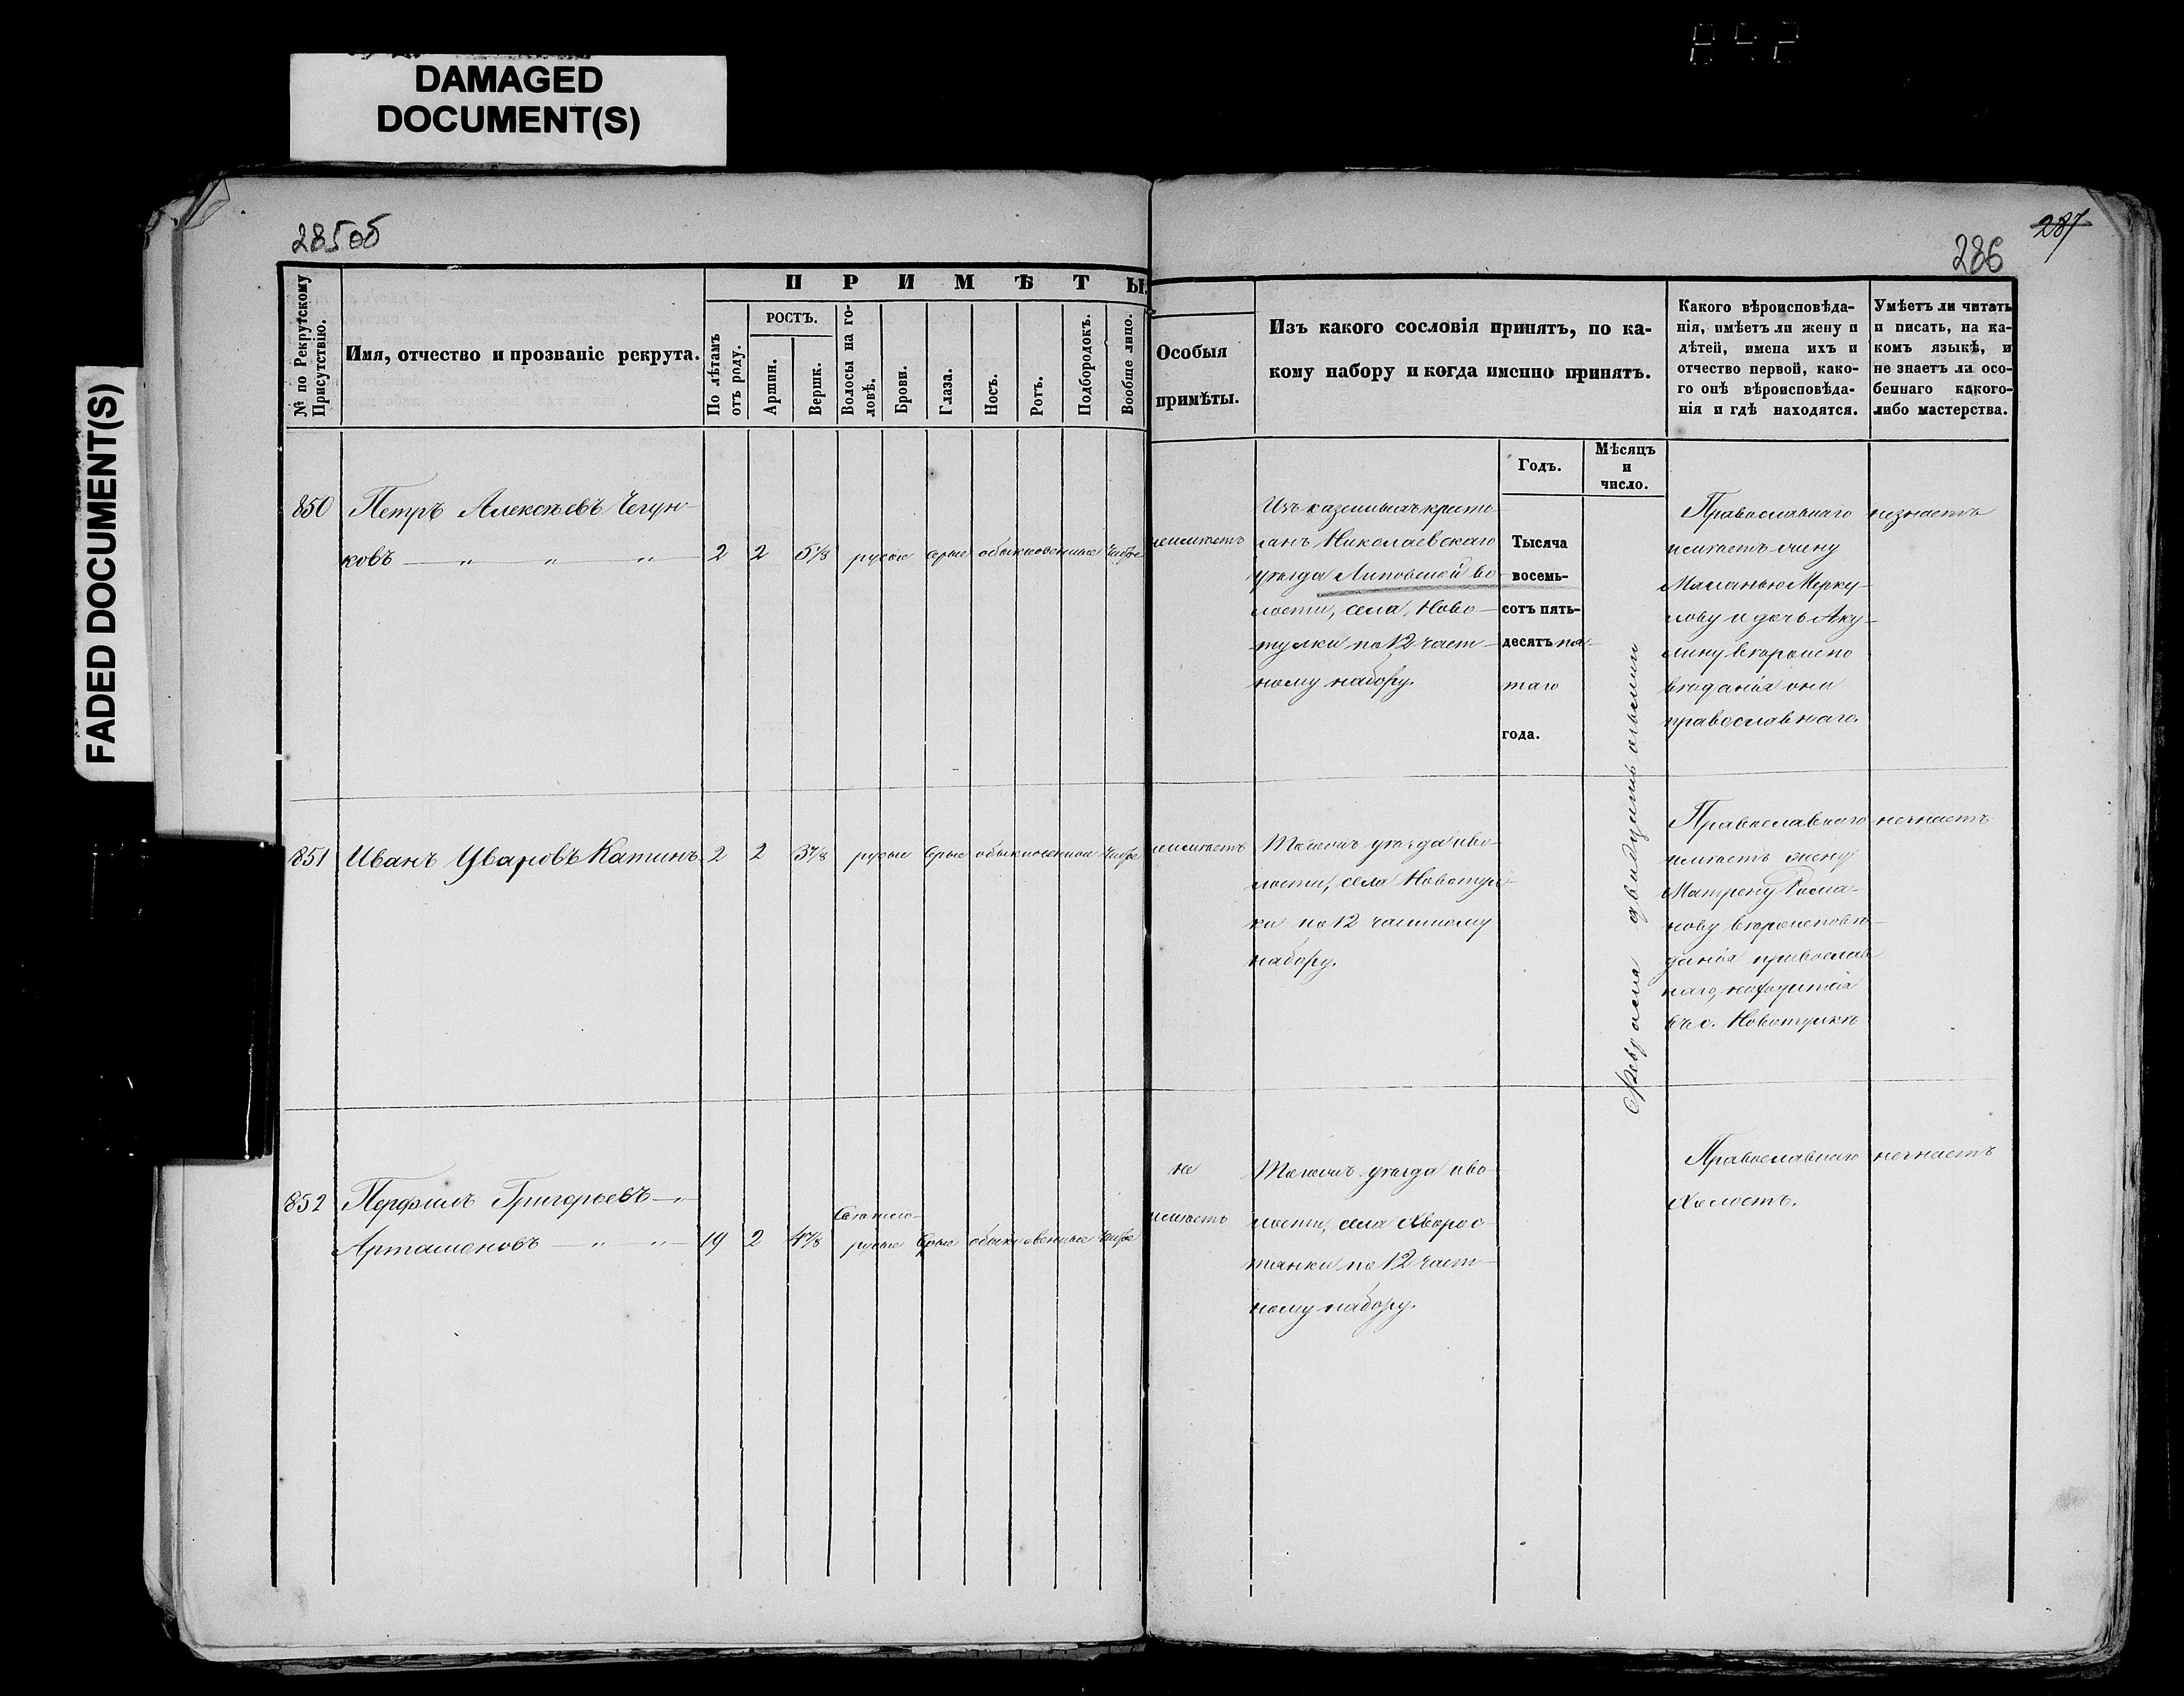 DAMAGED
DOCUMENT(S)
FADED DOCUMENT(S)
285об
287
286
№ по Рекрутскому Присутствію.
Имя, отчество и прозваніе рекрута.
ПРИМѢТЫ.
По лѣтамъ отъ роду.
РОСТЪ.
Аршин.
Вершк.
Волосы на головѣ.
Брови.
Глаза.
Носъ.
Ротъ.
Подбородокъ.
Вообще лицо.
Особыя
примѣты.
Изъ какого сословія принятъ, по ка-
кому набору и когда именно принятъ.
Годъ.
Мѣсяцъ
и
число.
Какого вѣроисповѣда-
нія, имѣетъ ли жену и
дѣтей, имена ихъ и
отчество первой, како-
го онѣ вѣроисповѣда-
нія и гдѣ находятся.
Умѣетъ ли читать
и писать, на ка-
комъ языкѣ, и
не знаетъ ли осо-
беннаго какого-
либо мастерства.
850 Петръ Алексѣевъ Чегун-
ковъ — " " " 2 2 5 1/8 русые серые обыкновенные чистое
неимѣетъ
Изъ казенныхъ кресть
янъ Николаевскаго
уѣзда Липовской во-
лости, села Ново-
тулки по 12 част-
ному набору.
Тысяча
восемь-
сотъ пять-
десятъ пя-
таго
года.
Февраля двадцать осьмаго
Православнаго
имѣетъ жену
Маланью Мерку-
лову и дочь Аку-
лину вѣроиспо
вѣданія они
православнаго.
незнаетъ
851 Иванъ Уваровъ Катинъ 2 2 3 7/8 русые серые обыкновенные чистое
неимѣетъ
Тогожъ уѣзда и во-
лости, села Новотул-
ки по 12 частному
набору.
Православнаго
имѣетъ жену
Матрену Рома-
нову вѣроисповѣ-
данія православ
наго, находится
въ с. Новотулкѣ
незнаетъ
852 Перфилъ Григорьевъ — "
Арташеновъ — " " 19 2 4 7/8 Свѣтло-
русые серые обыкновенные чистое
не
имѣетъ
Тогожъ уѣзда и во
лости, села Хворос
тянки по 12 част-
ному набору.
Православнаго
Холостъ.
незнаетъ